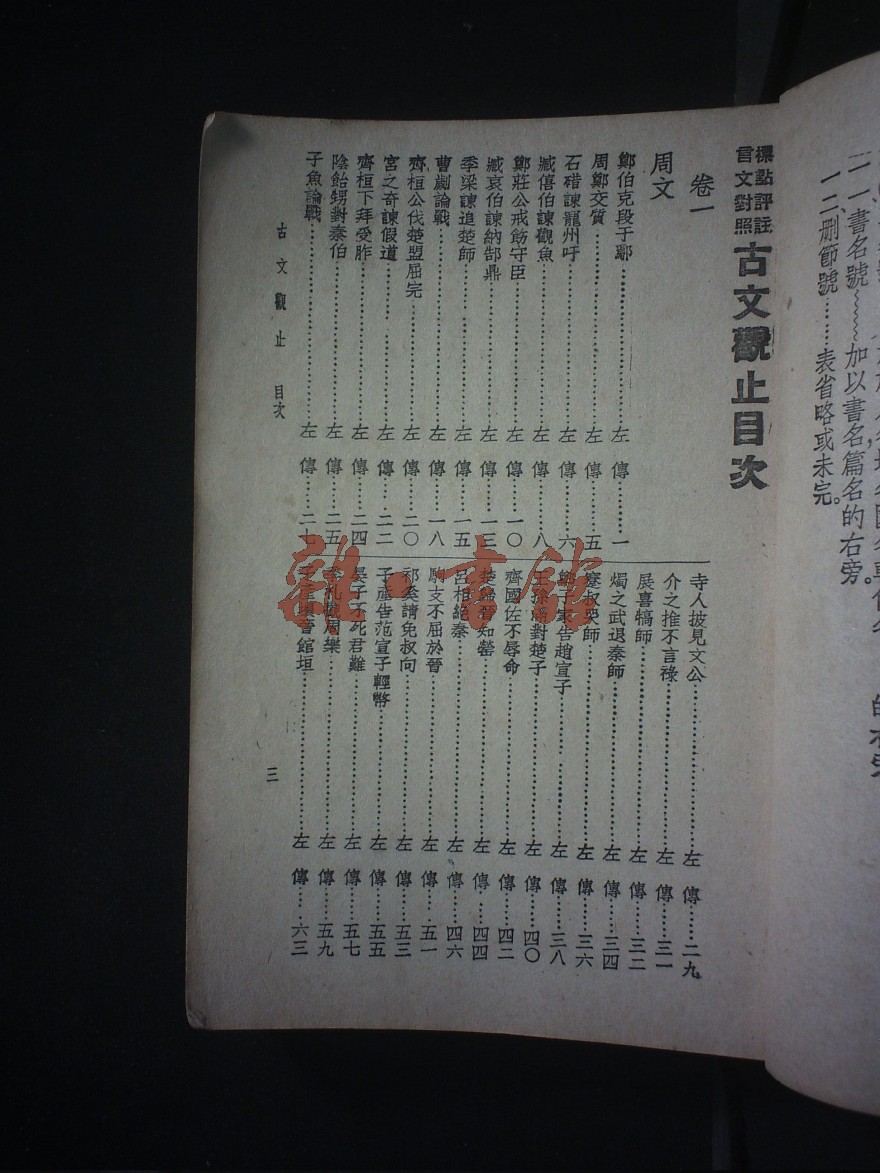 一一書名號……加以書名,篇名的右旁。
一二刪節號……表省略或未完。
標點評註
言文對照
古文觀止目次
卷一
周文
鄭伯克段于鄢……左傳……一
周鄭交質……左傳……五
石碏諫寵州吁……左傳……六
臧僖伯諫觀魚……左傳……八
鄭莊公戒飭守臣……左傳……一〇
臧哀伯諫納郜鼎……左傳……一三
季梁諫追楚師……左傳……一五
曹劌論戰……左傳……一八
齊桓公伐楚盟屈完……左傳……二〇
宮之奇諫假道……左傳……二二
齊桓下拜受胙……左傳……二四
陰飴甥對秦伯……左傳……二五
子魚論戰……左傳……二七
寺人披見文公……左傳……二九
介之推不言祿……左傳……三一
展喜犒師……左傳……三二
燭之武退秦師……左傳……三四
蹇叔哭師……左傳……三六
鄭子家告趙宣子……左傳……三八
王孫滿對楚子……左傳……四〇
齊國佐不辱命……左傳……四二
楚歸晉知罃……左傳……四四
呂相絕秦……左傳……四六
駒支不屈於晉……左傳……五一
祁奚請免叔向……左傳……五三
子產告范宣子輕幣……左傳……五五
晏子不死君難……左傳……五七
季札觀周樂……左傳……五九
子產壞晉館垣……左傳……六三
古文觀止 目次
三